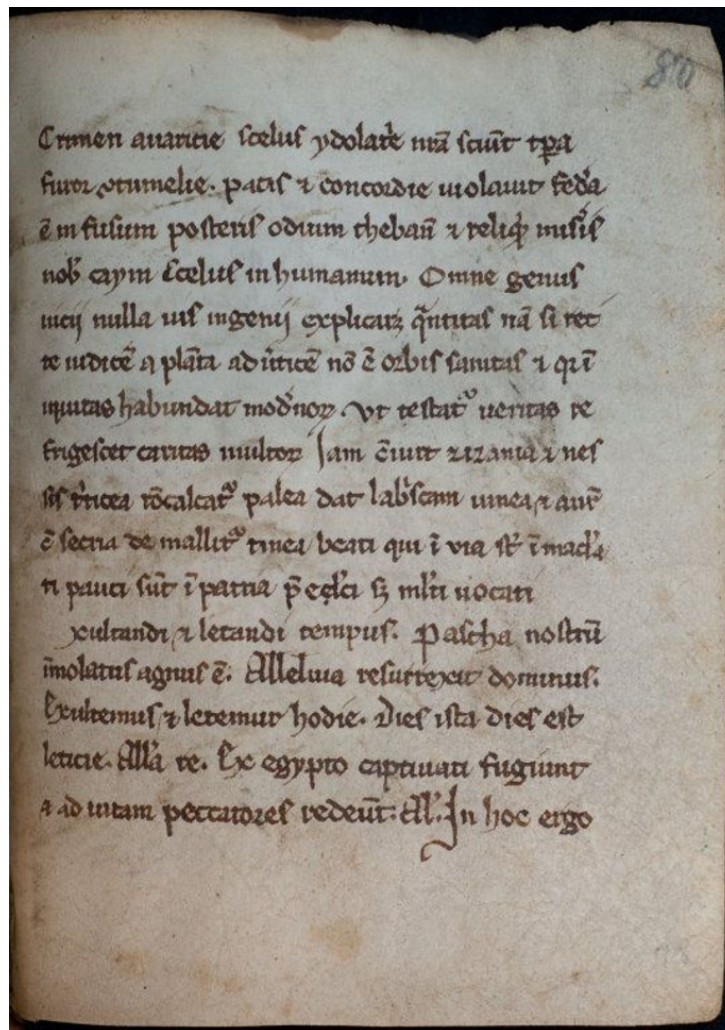 80
Crimen auaricie scelus ydolatͥe nr̄a sciūt tp̄a
furor ꝯtumelie. pacis ⁊ concordie uiolauit fed̓a
ē infusum posteris odium theban̄ ⁊ reliq̇ꝰ mis̓is
nob̓ caym scelus inhumanum. Omne genus
uicij nulla uis ingenij explicat; q̄ntitas nā si rec
te iudicē a plāta ad ūticē nō ē orbis sanitas ⁊ qꝛ ī
iquitas habundat mod̓noꝝ. Vt testatᷣ ueritas re
frigescet caritas multoꝝ Jam c̄iuit zizania ⁊ nes
sis tͥticea ꝯ̄calcatᷣ palea dat labͬscam uinea, ⁊ aur̄
ē scoria de mallitᷣ tinea beati qui ī via st̄ īmac̓la
ti pauci sūt ī patria p̄ eclc̓i sꝫ ml̓ti uocati
xultandi ⁊ letandi tempus. Pascha nostrū
īmolatus agnus ē. Alleluia resurrexit dominus.
Exultemus ⁊ letemur hodie. Dies ista dies est
leticie. All̓a re. Ex egypto captiuati fugiunt
⁊ ad uitam peccatores redeūt. Al̓. In hoc ergo